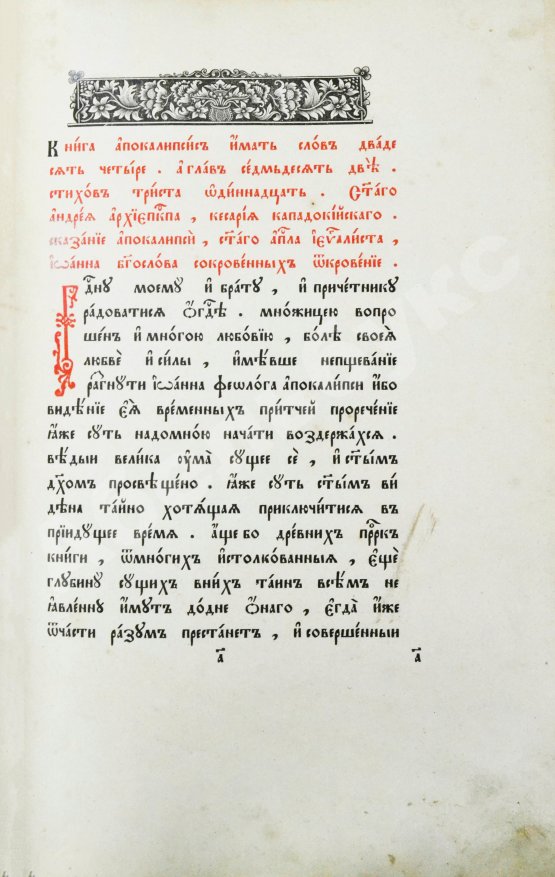 Кни́га а҆пока́липсисъ и҆́мать сло́въ два́де
сять четы́ре . а҆ гла́въ се́дмьдесятъ двѣ̀ .
стихо́въ три́ста ѡ҆ди́ннадцать . Ст҃а́го
а҆ндре́я а҆рхїепⷭ҇кпа , кесарі́я кападокі́йскаго .
сказа́нїе а҆пока́липсі́и , ст҃а́го а҆пⷭ҇ла і҆еѵⷢ҇али́ста ,
і҆ѡа́нна бг҃осло́ва сокрове́нныхъ ѿкрове́нїе .
Гдⷭ҇ну моемꙋ̀ и҆ бра́тꙋ , и҆ приче́тникꙋ
ра́доватися ѻ҆ гдⷭ҇ѣ . мно́жицею вопро
ше́нъ и҆ мно́гою любо́вїю , бо́лѣ своеѧ̀
любвѐ и҆ си́лы , и҆мѣ́вше непщева́нїе
ра́згнꙋти і҆ѡа́нна фео́лога а҆пока́липси и҆́бо
ви́дѣ́нїе є҆ѧ̀ вре́менныхъ при́тчей прорече́нїе
ꙗ҆́же сꙋть надомно́ю нача́ти воздержа́хся .
вѣ́дыи вели́ка ᲂу҆ма̀ сꙋ́щее сѐ , и҆ ст҃ы́мъ
дх҃омъ просвѣще́но . ꙗ҆́же сꙋть ст҃ы́мъ ви́
дѣна та́йно хотѧ́щая приключи́тися в
прїи́дꙋщее вре́мя . а҆́ще бо дре́внихъ прⷪ҇ркъ
кни́ги , ѿмно́гихъ и҆столко́ванныѧ , є҆щѐ
глꙋбинꙋ̀ сꙋ́щихъ вни́хъ та́инъ всѣ́мъ не
ꙗ҆вле́ннꙋ и҆́мꙋтъ до́дне ѻ҆́наго , є҆гда̀ и҆́же
ѿча́сти ра́зꙋмъ преста́нетъ , и҆ соверше́нныи
а҃ а҃